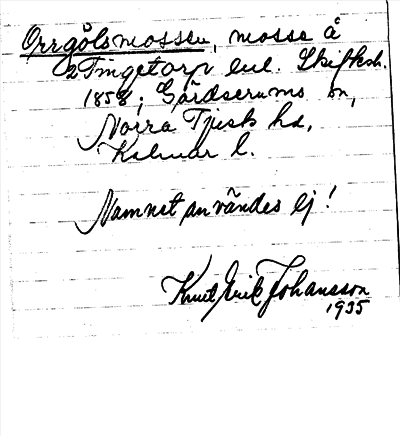 Orrgölsmossen, mosse å
Tingetorp enl. Skifksk.
1858; Gärdserums sn,
Norra Tjust hd,
Kalmar l.
Namnet användes ej!
Knut Erik Johansson
1935